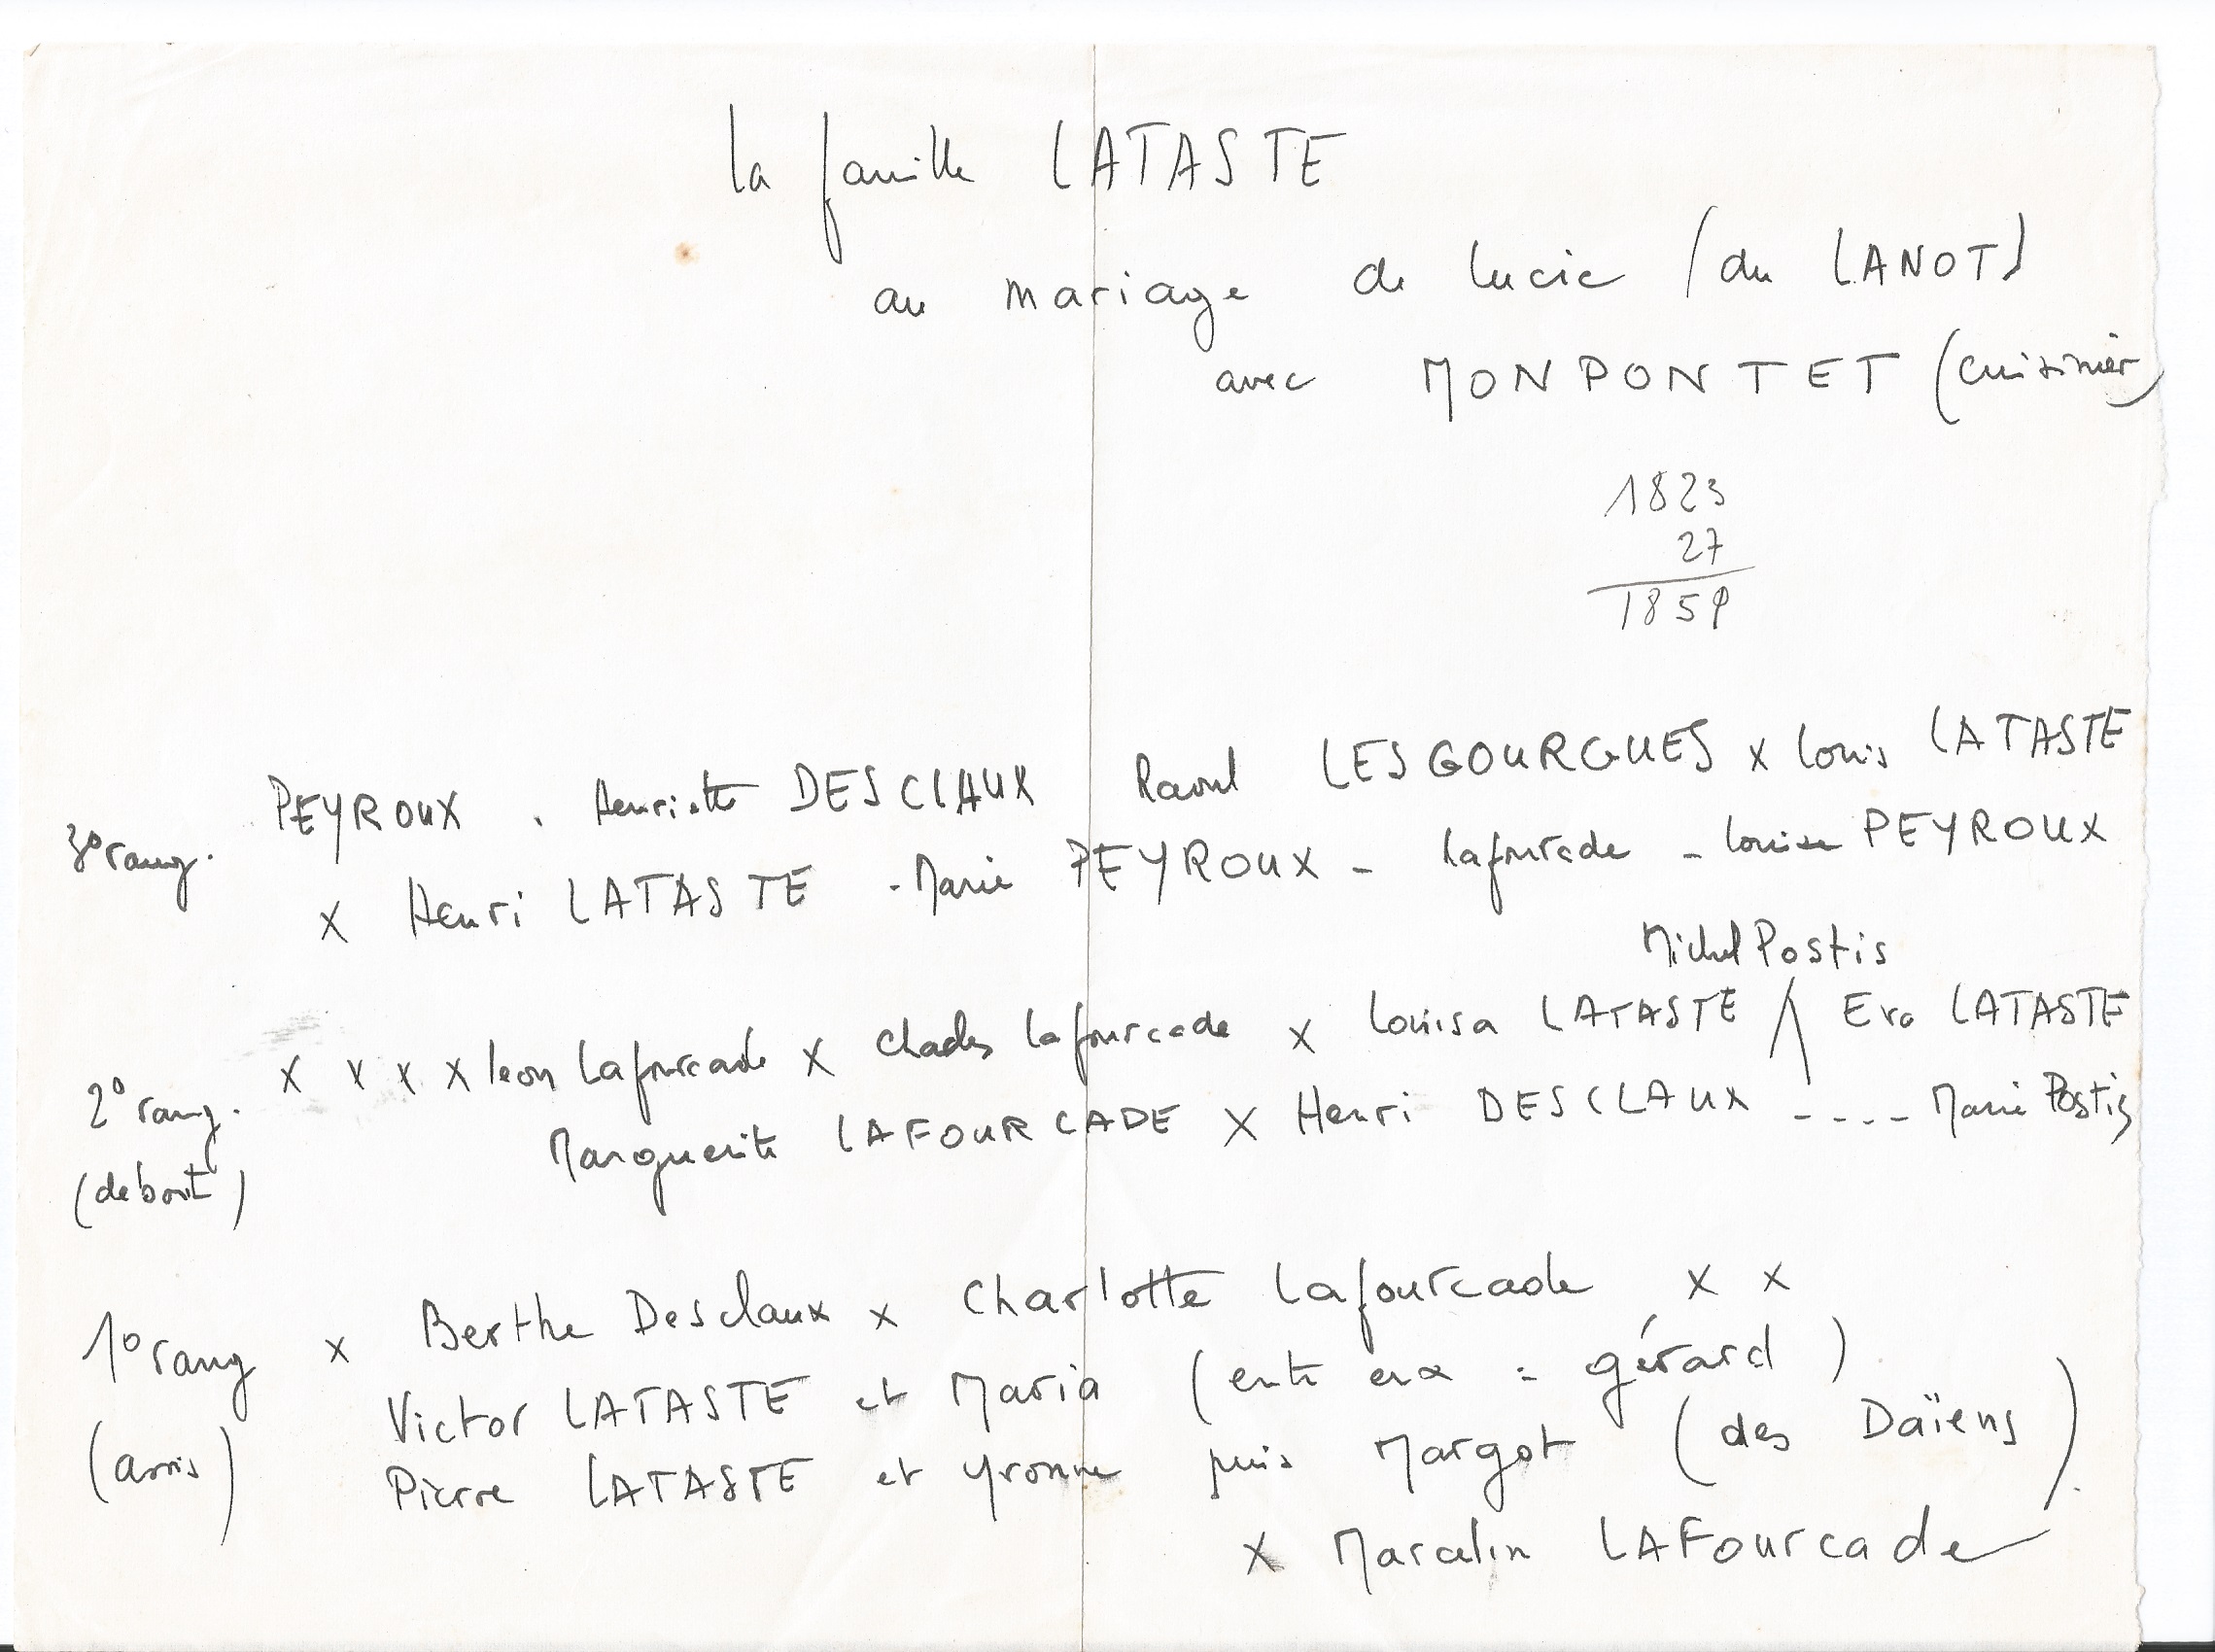 la famille LATASTE
au mariage de Lucie (du LANOT)
avec MONPONTET (cuisinier)
1823
27
1859
3° rang. PEYROUX . Henriette DESCLAUX Raoul LESGOURGUES x Louis LATASTE
x Henri LATASTE - Marie PEYROUX - Lafourcade - Louise PEYROUX
Michel Postis
2° rang. x x x x leon Lafourcade x Charles Lafourcade x Louisa LATASTE /\ Eva LATASTE
(debout) Marguerite LAFOURCADE x Henri DESCLAUX ---- Marie Postis
1° rang x Berthe Desclaux x Charlotte Lafourcade x x
(assis) Victor LATASTE et Maria (entre eux = gérard)
Pierre LATASTE et Yvonne puis Margot (des Daïens)
x Marcelin LAFourcade